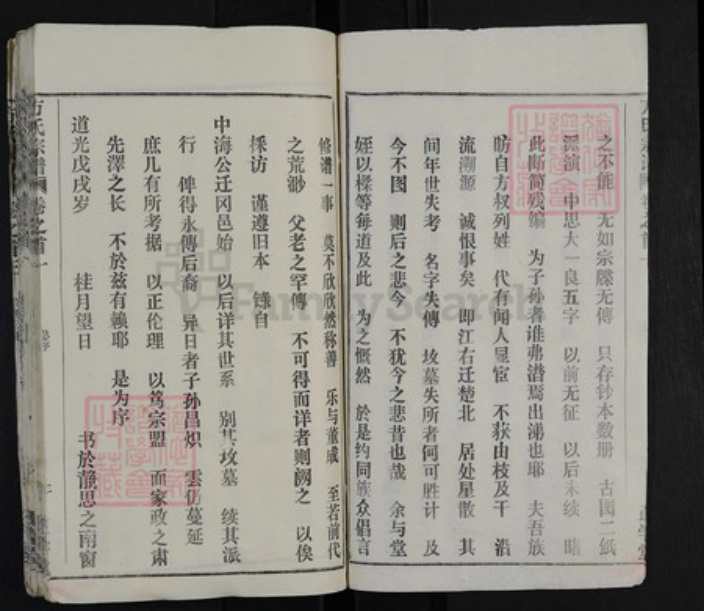 之不能 无如宗牒无傳 只存钞本数册 古图二纸
派演 中思大一良五字 以前无征 以后未续 睹
此断简残编 为子孙者谁弗潜焉出涕也耶 夫吾族
昉自方叔列姓 代有闻人显宦 不获由枝及干 沿
流溯源 诚恨事矣 即江右迁楚北 居处星散 其
间年世失考 名字失傳 坟墓失所者何可胜计 及
今不图 则后之悲今 不犹今之悲昔也哉 余与堂
姪以樑等每道及此 为之慨然 於是约同族众倡言
修谱一事 莫不欣欣然称善 乐与董成 至若前代
之荒渺 父老之罕傳 不可得而详者则阙之 以俟
採访 谨遵旧本 錄自
中海公迁冈邑始 以后详其世系 别其坟墓 续其派
行 俾得永傳后裔 异日者子孙昌炽 雲仍蔓延
庶几有所考据 以正伦理 以篤宗盟 而家政之肃
先澤之长 不於兹有賴耶 是为序
道光戊戌岁 桂月望日 书於静思之南窗
方氏宗谱 卷之首一
FamilySearch